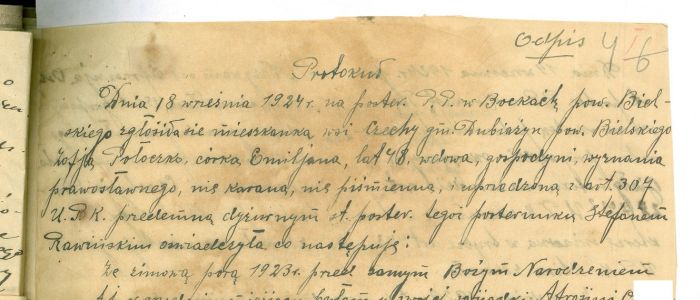 Odpis 4 I 6
Protokuł
Dnia 18 wreśnia 1924 r. na poster. P.P. w Boćkach, pow. Biel-
skiego zgłosiła sie mieszkanka wsi Czechy gm. Dubiażyn pow. Bielskiego
Zofja Połoczko, córka Emiljana, lat 48, wdowa, gospodyni, wyznania
prawosławnego, nie karana, nie piśmienna, i uprzedzona z art. 307
U.P.K. przedemną dyżurnym st. poster. tegoż posterunku Stefanem
Rawińskim oświadczyła co następuje:
że zimową porą 1923 r. przed samym Bożym Narodzeniem